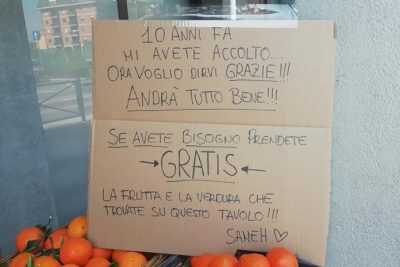 10 ANNI FA
MI AVETE ACCOLTO...
ORA VOGLIO DIRVI GRAZIE!!!
ANDRÀ TUTTO BENE!!!
SE AVETE BISOGNO PRENDETE
→GRATIS←
LA FRUTTA E LA VERDURA CHE
TROVATE SU QUESTO TAVOLO!!!
SAMEH ♡